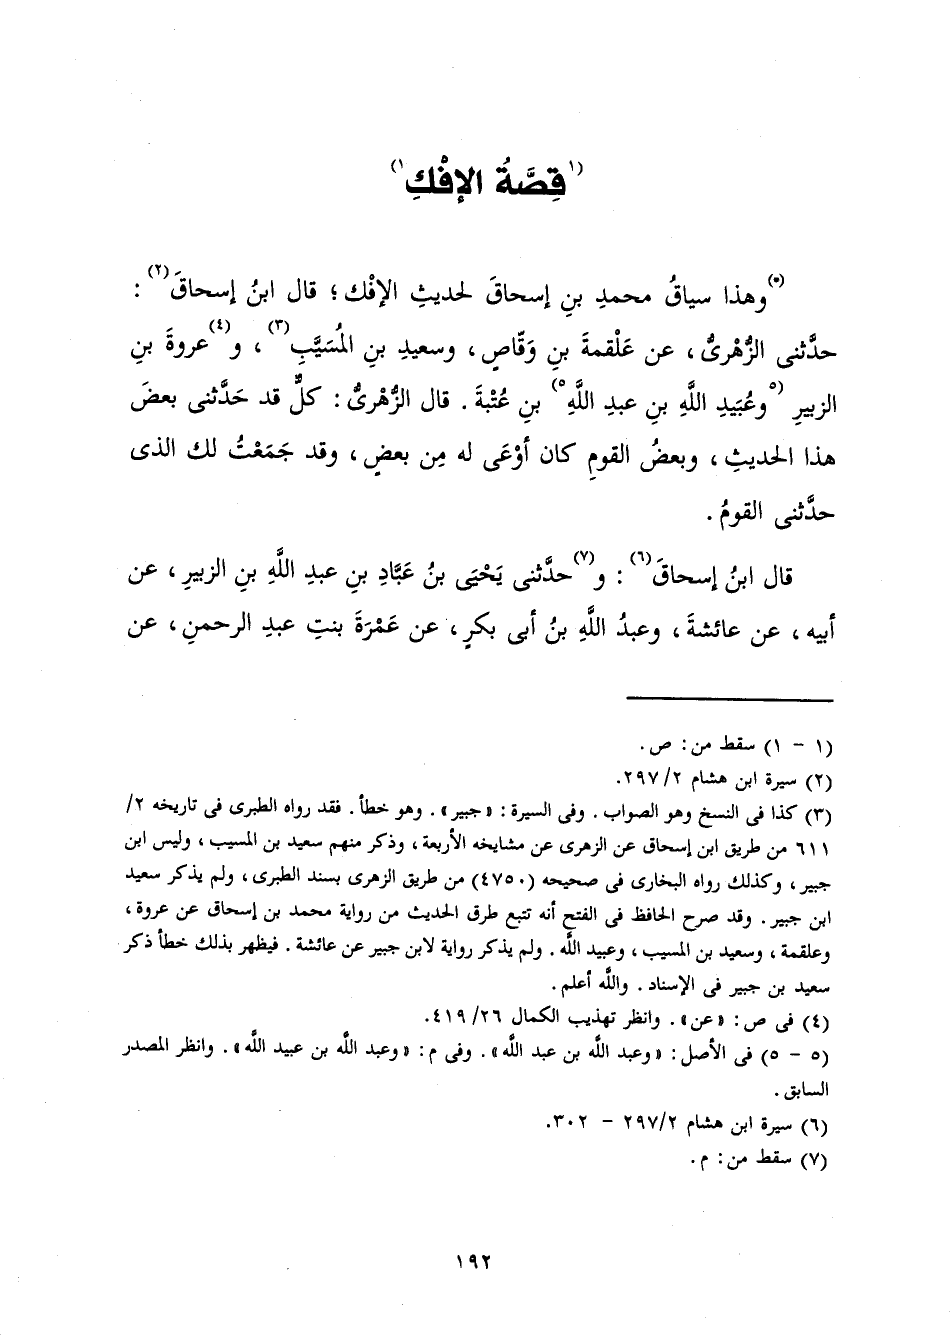 (١قِصَّةُ الإفْكِ١)
(٥)وهذا سياقُ محمدِ بنِ إسحاقَ لحديثِ الإفْك؛ قال ابنُ إسحاقَ(٢):
حدَّثنى الزُّهْرىُّ، عن عَلْقمةَ بنِ وَقّاصٍ، وسعيدِ بنِ المُسَيَّبِ(٣)، و(٤)عروةَ بنِ
الزبيرِ (٥وعُبَيدِ اللَّهِ بنِ عبدِ اللَّهِ٥) بنِ عُتْبةَ. قال الزُّهْرىُّ: كلٌّ قد حَدَّثنى بعضَ
هذا الحديثِ، وبعضُ القومِ كان أوْعَى له مِن بعضٍ، وقد جَمَعْتُ لك الذى
حدَّثنى القومُ.
قال ابنُ إسحاقَ(٦): و(٧)حدَّثنى يَحْيَى بنُ عَبَّادِ بنِ عبدِ اللَّهِ بنِ الزبيرِ، عن
أبيه، عن عائشةَ، وعبدُ اللَّهِ بنُ أبى بكرٍ، عن عَمْرَةَ بنتِ عبدِ الرحمنِ، عن
(١ - ١) سقط من: ص.
(٢) سيرة ابن هشام ٢/ ٢٩٧.
(٣) كذا فى النسخ وهو الصواب. وفى السيرة: «جبير». وهو خطأ. فقد رواه الطبرى فى تاريخه ٢/
٦١١ من طريق ابن إسحاق عن الزهرى عن مشايخه الأربعة، وذكر منهم سعيد بن المسيب، وليس ابن
جبير، وكذلك رواه البخارى فى صحيحه (٤٧٥٠) من طريق الزهرى بسند الطبرى، ولم يذكر سعيد
ابن جبير. وقد صرح الحافظ فى الفتح أنه تتبع طرق الحديث من رواية محمد بن إسحاق عن عروة،
وعلقمة، وسعيد بن المسيب، وعبيد اللَّه. ولم يذكر رواية لابن جبير عن عائشة. فيظهر بذلك خطأ ذكر
سعيد بن جبير فى الإسناد. واللَّه أعلم.
(٤) فى ص: «عن». وانظر تهذيب الكمال ٢٦/ ٤١٩.
(٥ - ٥) فى الأصل: «وعبد اللَّه بن عبد اللَّه». وفى م: «وعبد اللَّه بن عبيد اللَّه». وانظر المصدر
السابق.
(٦) سيرة ابن هشام ٢/ ٢٩٧ - ٣٠٢.
(٧) سقط من: م.
١٩٢